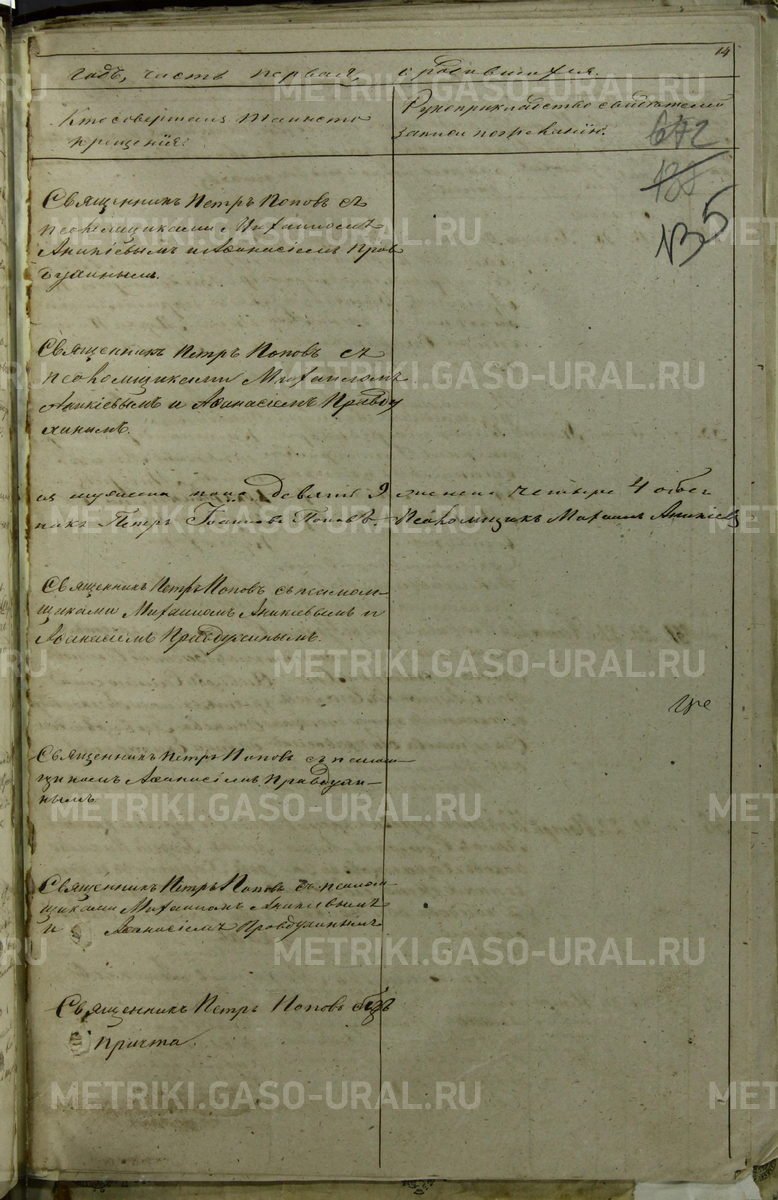 14
годъ, часть первая, о родившихся.
Кто совершалъ таинство
крещенія:
Рукоприкладство свидѣтелей
записи по желанію.
672
135
№5
Священникъ Петръ Поповъ съ
псаломщиками Михаиломъ
Аникіевымъ и Аѳанасіемъ Прав
духинымъ.
Священникъ Петръ Поповъ съ
псаломщиками Михаиломъ
Аникіевымъ и Аѳанасіемъ Правду
хинымъ.
девять 9 женска четыре 4 обоего
Петръ Іоанновъ Поповъ. Псаломщикъ Михаилъ Аникіевъ
Священникъ Петръ Поповъ съ псалом-
щиками Михаиломъ Аникіевымъ и
Аѳанасіемъ Правдухинымъ.
Священникъ Петръ Поповъ съ псалом-
щикомъ Аѳанасіемъ Правдухи-
нымъ
Священникъ Петръ Поповъ съ псалом-
щиками Михаиломъ Аникіевымъ
и Аѳанасіемъ Правдухинымъ
Священникъ Петръ Поповъ безъ
причта.
METRIKI.GASO-URAL.RU